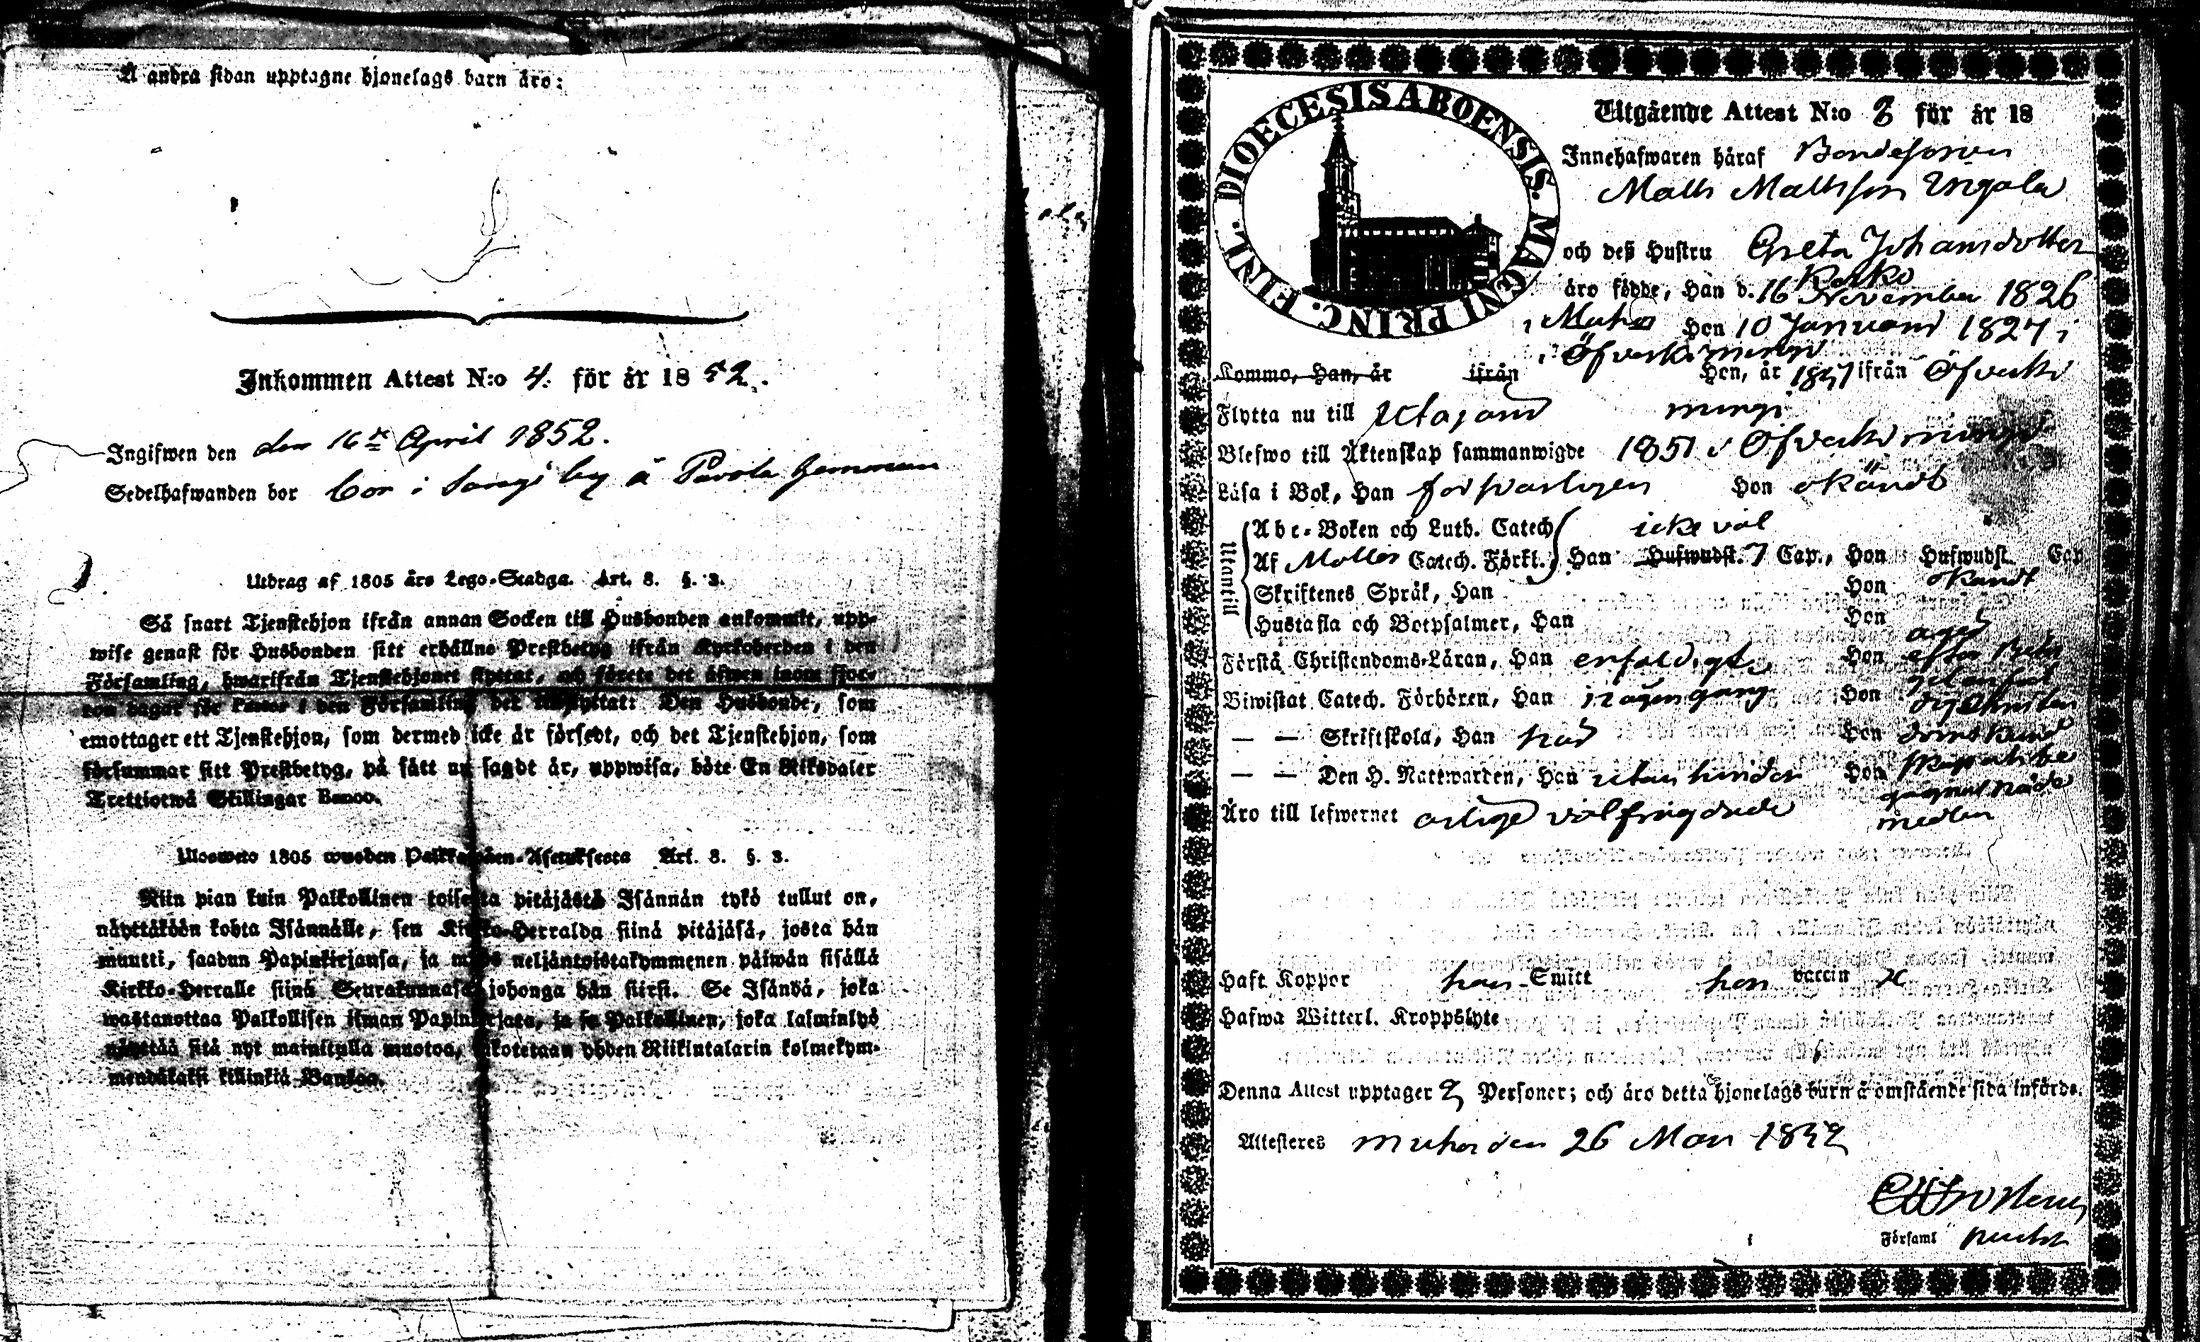 Å andra sidan upptagne hjonelags barn äro:
Inkommen Attest N:o 4. för år 1852.
Ingifwen den den 16de April 1852.
Sedelhafwanden bor bor i Sangi by å Parola hemman
Utdrag af 1805 års Lego-Stadga. Art. 8. §. 3.
Så snart Tjenstehjon ifrån annan Socken till Husbonden ankommit, upp-
wise genast för Husbonden sitt erhållne Prestbetyg ifrån Kyrkoherden i den
Församling, hwarifrån Tjenstehjonet flyttat, och förete det äfwen inom fjor-
ton dagar för Pastor i den Församling det inflyttat: Den Husbonde, som
emottager ett Tjenstehjon, som dermed icke är försedt, och det Tjenstehjon, som
försummar sitt Prestbetyg, på sätt nu sagdt är, uppwisa, böte En Riksdaler
Trettiotwå Skillingar Banco.
Ulosweto 1805 wuoden Palkkawäen-Asetuksesta Art. 8. §. 3.
Niin pian kuin Palkollinen toisesta pitäjästä Isännän tykö tullut on,
näyttäköön kohta Isännälle, sen Kirkko-Herralda siinä pitäjäsä, josta hän
muutti, saadun Papinkirjansa, ja myös neljäntoistakymmenen päiwän sisällä
Kirkko-Herralle siinä Seurakunnasa johonga hän siirsi. Se Isändä, joka
wastanottaa Palkollisen ilman Papinkirjata, ja se Palkollinen, joka laiminlyö
näyttää sitä nyt mainitulla muotoa, sakotetaan yhden Riikintalarin kolmekym-
mendäkaksi killinkiä Bankoa.
DIOECESIS ABOENSIS. MAGNI PRINC. FINL.
Utgående Attest N:o 8 för år 18
Innehafwaren häraf Bondesonen
Matts Mattsson Ungala
och deß Hustru Greta Johansdotter
Karko
äro födde, Han d. 16 November 1826
i Muhos Hon 10 Januari 1827 i
Öfverkiiminge
Kommo, Han, år ifrån Hon, år 1851 ifrån Öfverki
Flytta nu till Utajärvi mingi
Blefwo till Äktenskap sammanwigde 1851 i Öfverkiminge
Läsa i Bok, Han försvarligen Hon okändt
Utantill
Abc-Boken och Luth. Catech icke väl
Af Möllers Catech. Förkl. Han Hufwudst. 7 Cap., Hon Hufwudst. Cap
Skriftenes Språk, Han Hon okändt
Hustafla och Botpsalmer, Han Hon
Förstå Christendoms-Läran, Han enfaldigt Hon
Biwistat Catech. Förhören, Han någon gång Hon
— — Skriftskola, Han har Hon
— — Den H. Nattwarden, Han utan hinder Hon
Äro till lefwernet ärlige välfrägdade
Haft Koppor han Smitt hon vaccin
Hafwa Witterl. Kroppslyte
Denna Attest upptager 2 Personer; och äro detta hjonelags barn å omstående sida införde.
Attesteres Muhos den 26 Mars 1852
Församl